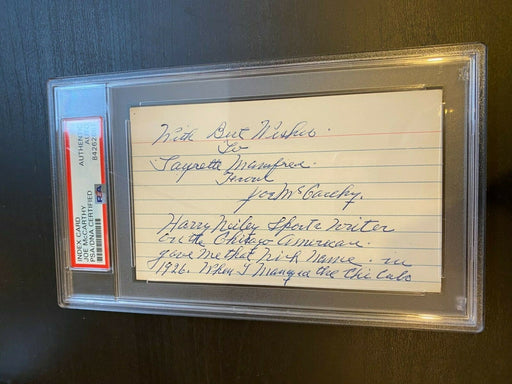 INDEX CARD
JOE McCARTHY
PSA/DNA CERTIFIED
AUTHENTIC
84262
PSA
With Best Wishes.
To
Manfred.
Joe McCarthy.
Harry Neily Sports Writer
on the Chicago American.
gave me that Nick Name. in
1926. When I Managed the Chi Cubs